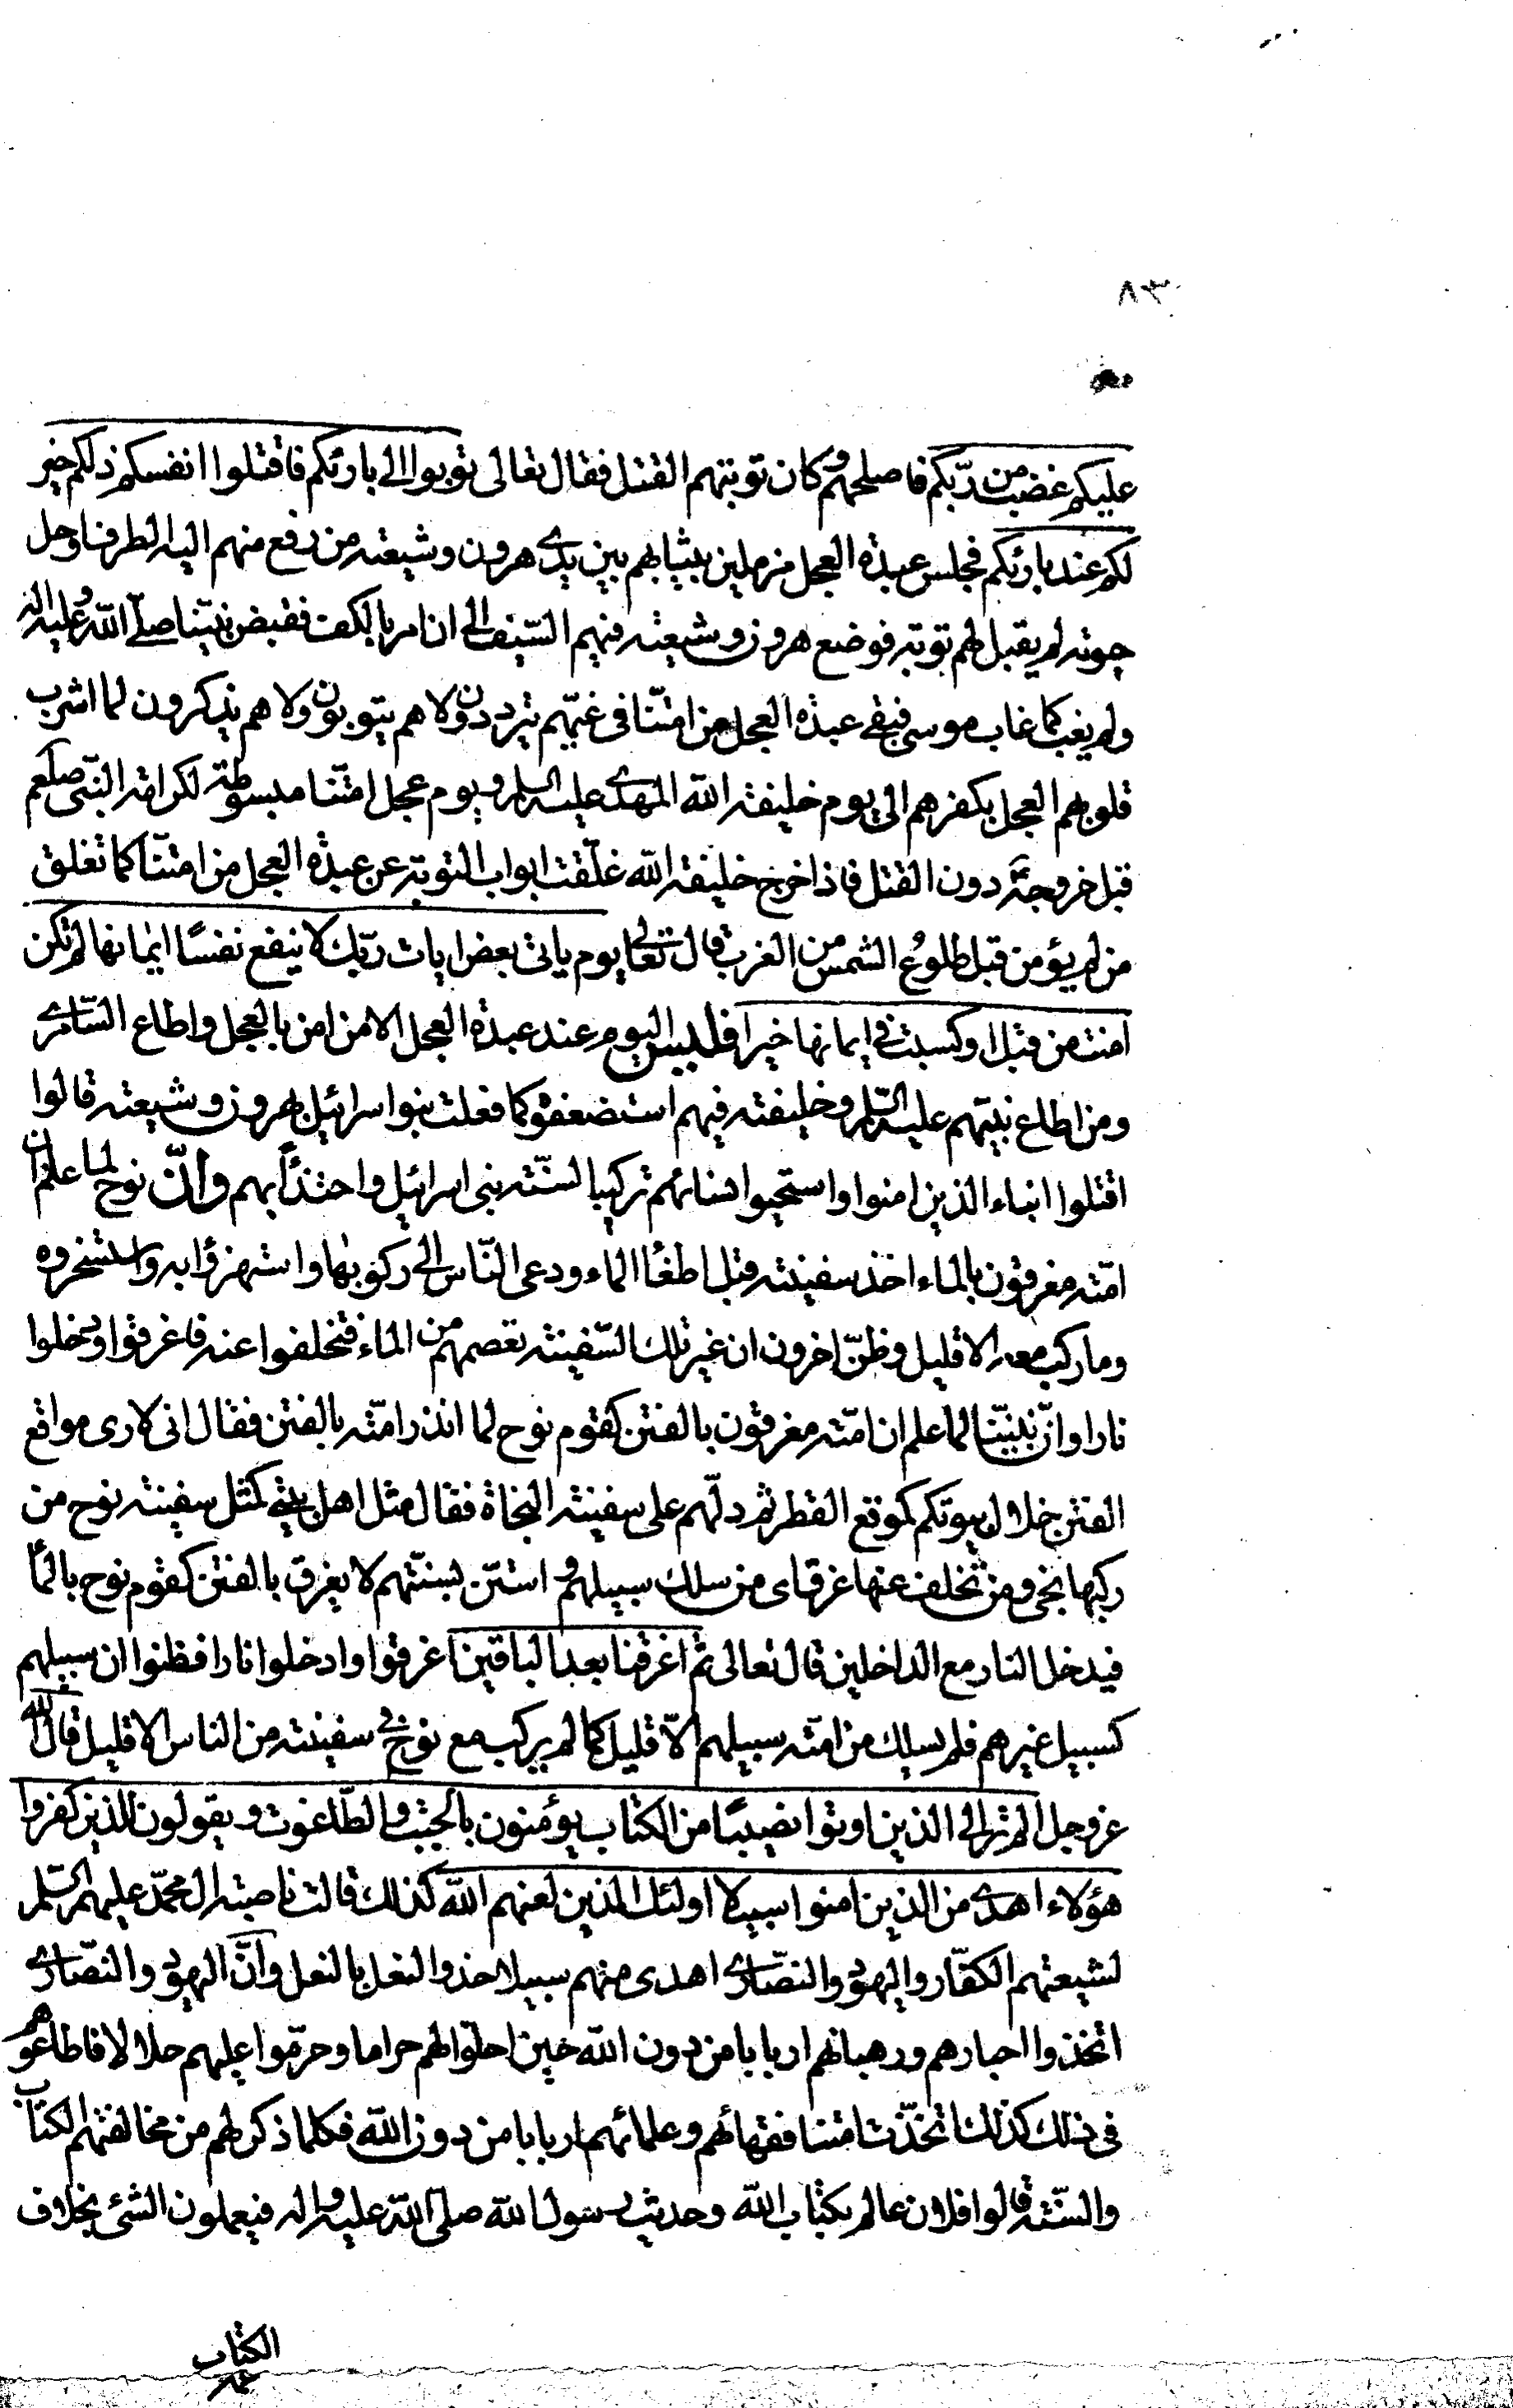 ٨٣
عليكم غضب من ربّكم فاصلحهم وكان توبتهم القتل فقال تعالى توبوا الى بارئكم فاقتلوا انفسكم ذلكم خير
لكم عند بارئكم فجلس عبدة العجل مزملين بثيابهم بين يدى هرون وشيعته من رفع منهم اليه الطرف او حل
حبوته لم يقبل لهم توبة فوضع هرون وشيعته فيهم السّيف الى ان امر بالكف فقبض نبيّنا صلّى الله عليه واله
ولم يغب كما غاب موسى فبقى عبدة العجل من امّتنا فى غيّهم يترددون ولا هم يتوبون ولا هم يذكرون لما اشرب
قلوبهم العجل بكفرهم الى يوم خليفة الله المهدى عليه السلم ويوم عجل امّتنا مبسوطة لكرامة النبّى صلعم
قبل خروجه دون القتل فاذا خرج خليفة الله غلّقت ابواب التوبة عن عبدة العجل من امّتنا كما تغلق
من لم يؤمن قبل طلوع الشمس من الغرب قال تعالى يوم ياتى بعض ايات ربّك لا ينفع نفسًا ايمانها لم تكن
امنت من قبل او كسبت فى ايمانها خيرا فليس اليوم عند عبدة العجل الا من امن بالعجل واطاع السّامرى
ومن اطاع نبيّهم عليه السّلم وخليفته فيهم استضعفوه كما فعلت بنوا سرائيل بهرون وشيعته قالوا
اقتلوا ابناء الذين امنوا واستحيوا نسائهم تركيبا لسنّة بنى اسرائيل واحتذأً بهم وانّ نوح لما علم ان
امّته مغرقون بالماء اخذ سفينته قبل اطغأ الماء ودعى النّاس الى ركوبها واستهزؤا به واستسخروه
وما ركب معه الا قليل وظنّ اخرون ان غير تلك السّفينة تعصمهم من الماء فتخلفوا عنه فاغرقوا ودخلوا
نارا وانّ نبيّنا لما علم ان امّته مغرقون بالفتن كقوم نوح لما انذر امّته بالفتن فقال انى لارى مواقع
الفتن خلال بيوتكم كموقع القطر ثم دلّهم على سفينة النجاة فقال مثل اهل بيتى كمثل سفينة نوح من
ركبها نجى ومن تخلف عنها غرق اى من سلك سبيلهم واستنّ بسنّتهم لا يغرق بالفتن كقوم نوح بالمأ
فيدخل النار مع الداخلين قال تعالى ثم اغرقنا بعد الباقين اغرقوا وادخلوا نارا فظنوا ان سبيلهم
كسبيل غيرهم فلم يسلك من امّته سبيلهم الّا قليل كما لم يركب مع نوح فى سفينته من الناس الا قليل قال الله
عز وجل الم تر الى الذين اوتوا نصيبًا من الكتاب يؤمنون بالجبت والطّاغوت ويقولون للذين كفروا
هؤلاء اهدى من الذين امنوا سبيلا اولئك الذين لعنهم الله كذلك قالت ناصبة ال محمّد عليهم السّلم
لشيعتهم الكفّار واليهود والنصّارى اهدى منهم سبيلا حذو النعل بالنعل وانّ اليهود والنصّارى
اتخذوا احبارهم ورهبانهم اربابا من دون الله حين احلّوا لهم حراما وحرّموا عليهم حلالا فاطاعوهم
فى ذلك كذلك اتخذت امّتنا فقهائهم وعلمائهم اربابا من دون الله فكلما ذكر لهم من مخالفتهم الكتاب
والسّنة قالوا فلان عالم بكتاب الله وحديث رسول الله صلى الله عليه واله فيعملون الشئ بخلاف
الكتاب